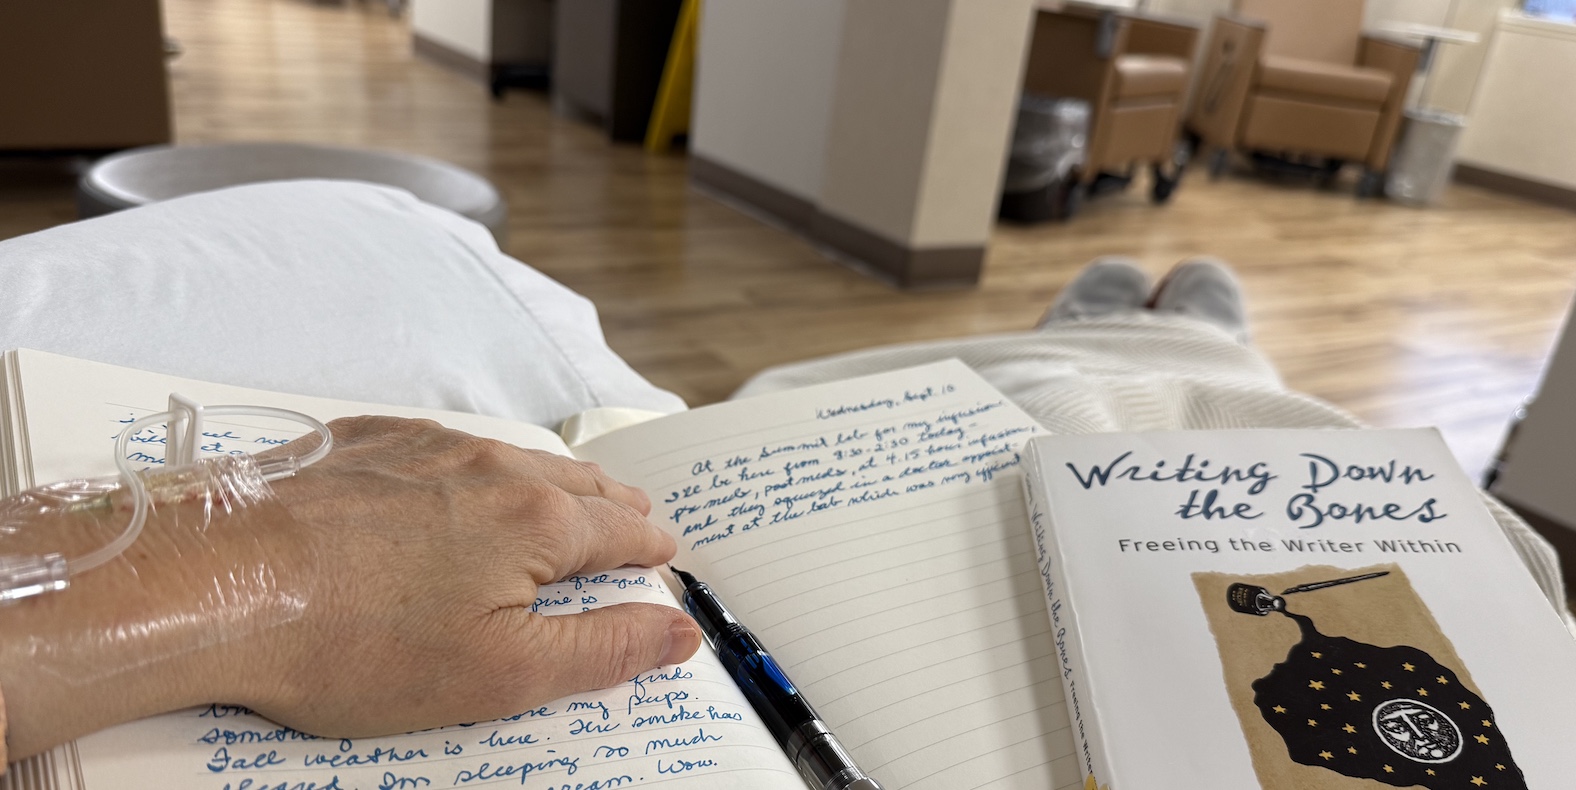 Wednesday, Sept 10
At the Summit lab for my infusion.
I'll be here from 8:30-2:30 today -
pre meds, post meds, at 4.15 hour infusion,
and they squeezed in a doctor appoint-
ment at the lab which was my
finds
my pups.
something
The smoke has
Fall weather is here.
cleared. I'm sleeping so much
Wow.
Writing Down
the Bones
Freeing the Writer Within
Writing Down the Bones Freeing the Writer Within